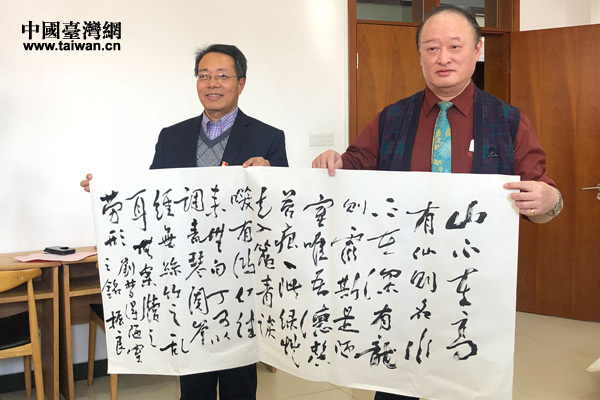 中國臺灣網
www.taiwan.cn
山不在高
有仙則名水
不在深有龍
則靈斯是陋
室唯吾德馨
苔痕上階綠草
色入簾青談
笑有鴻儒往
來無白丁可以
調素琴閱金
經無絲竹之乱
耳無案牘之
勞形
劉禹錫陋室
之銘 振良